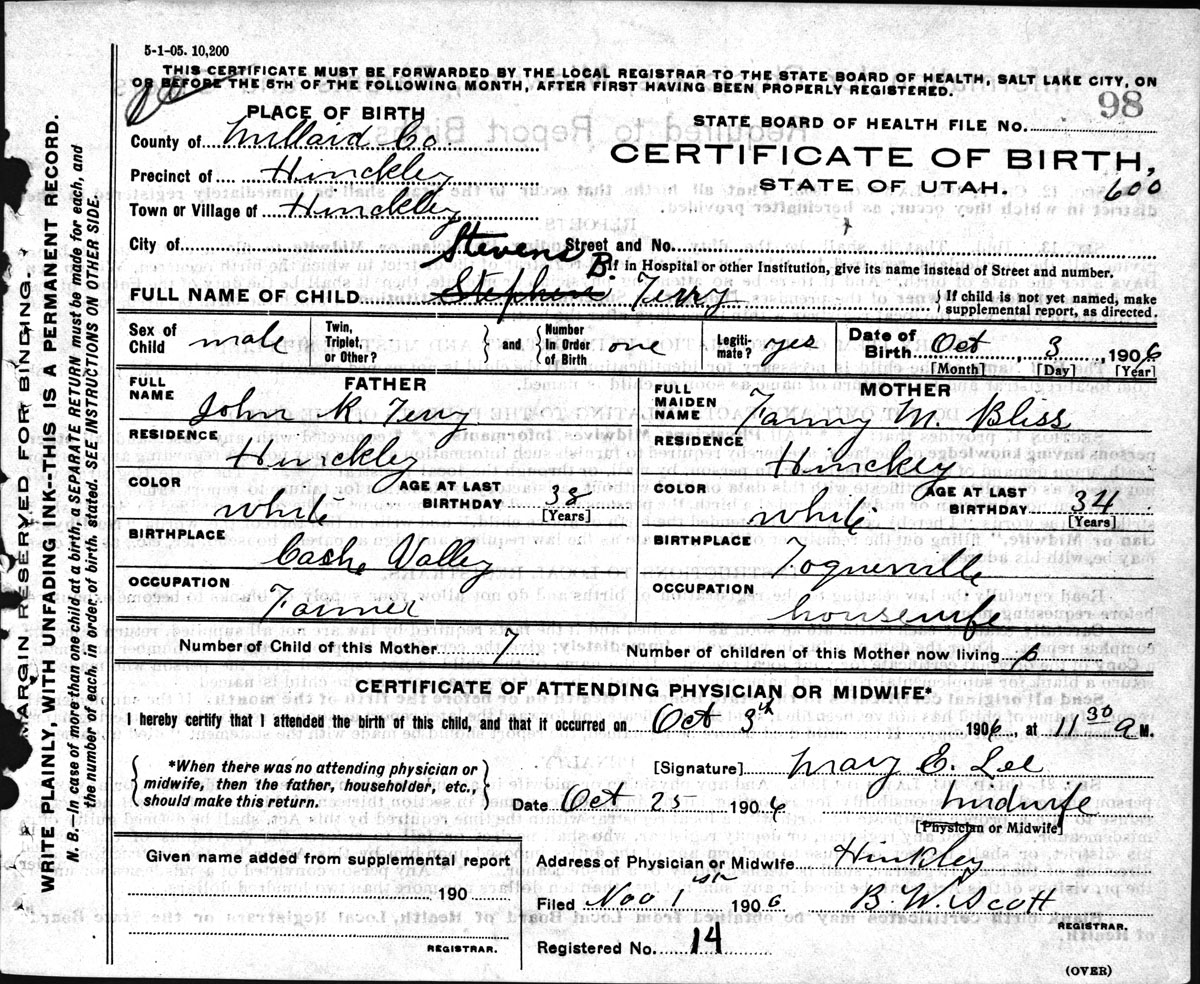 5-1-05. 10,200
THIS CERTIFICATE MUST BE FORWARDED BY THE LOCAL REGISTRAR TO THE STATE BOARD OF HEALTH, SALT LAKE CITY, ON
OR BEFORE THE 5TH OF THE FOLLOWING MONTH, AFTER FIRST HAVING BEEN PROPERLY REGISTERED.
98
PLACE OF BIRTH
STATE BOARD OF HEALTH FILE No.
County of Millard Co.
CERTIFICATE OF BIRTH,
Precinct of Hinckley
STATE OF UTAH. 600
Town or Village of Hinckley
City of Street and No.
Stevens B. If in Hospital or other Institution, give its name instead of Street and number.
FULL NAME OF CHILD Stephens Terry { If child is not yet named, make
supplemental report, as directed.
Sex of Child male
Twin, Triplet, or Other? } and { Number In Order of Birth one
Legiti-mate? yes
Date of Birth Oct, 3, 1906
[Month] [Day] [Year]
FATHER
FULL NAME John R. Terry
RESIDENCE Hinckley
COLOR white AGE AT LAST BIRTHDAY 38
[Years]
BIRTHPLACE Cashe Valley
OCCUPATION Farmer
MOTHER
FULL MAIDEN NAME Fanny M. Bliss
RESIDENCE Hinckley
COLOR white AGE AT LAST BIRTHDAY 34
[Years]
BIRTHPLACE Toquerville
OCCUPATION housewife
Number of Child of this Mother 7 Number of children of this Mother now living 6
CERTIFICATE OF ATTENDING PHYSICIAN OR MIDWIFE*
I hereby certify that I attended the birth of this child, and that it occurred on Oct 3th 1906, at 11 30 a M.
{ *When there was no attending physician or
midwife, then the father, householder, etc.,
should make this return. }
[Signature] Mary E. Lee
Date Oct 25 1906 midwife
[Physician or Midwife]
Given name added from supplemental report
190
REGISTRAR.
Address of Physician or Midwife Hinkley
Filed Nov 1st 1906 B. W. Scott
REGISTRAR.
Registered No. 14
(OVER)
MARGIN RESERVED FOR BINDING.
WRITE PLAINLY, WITH UNFADING INK--THIS IS A PERMANENT RECORD.
N. B.—In case of more than one child at a birth, a SEPARATE RETURN must be made for each, and
the number of each, in order of birth, stated. SEE INSTRUCTIONS ON OTHER SIDE.